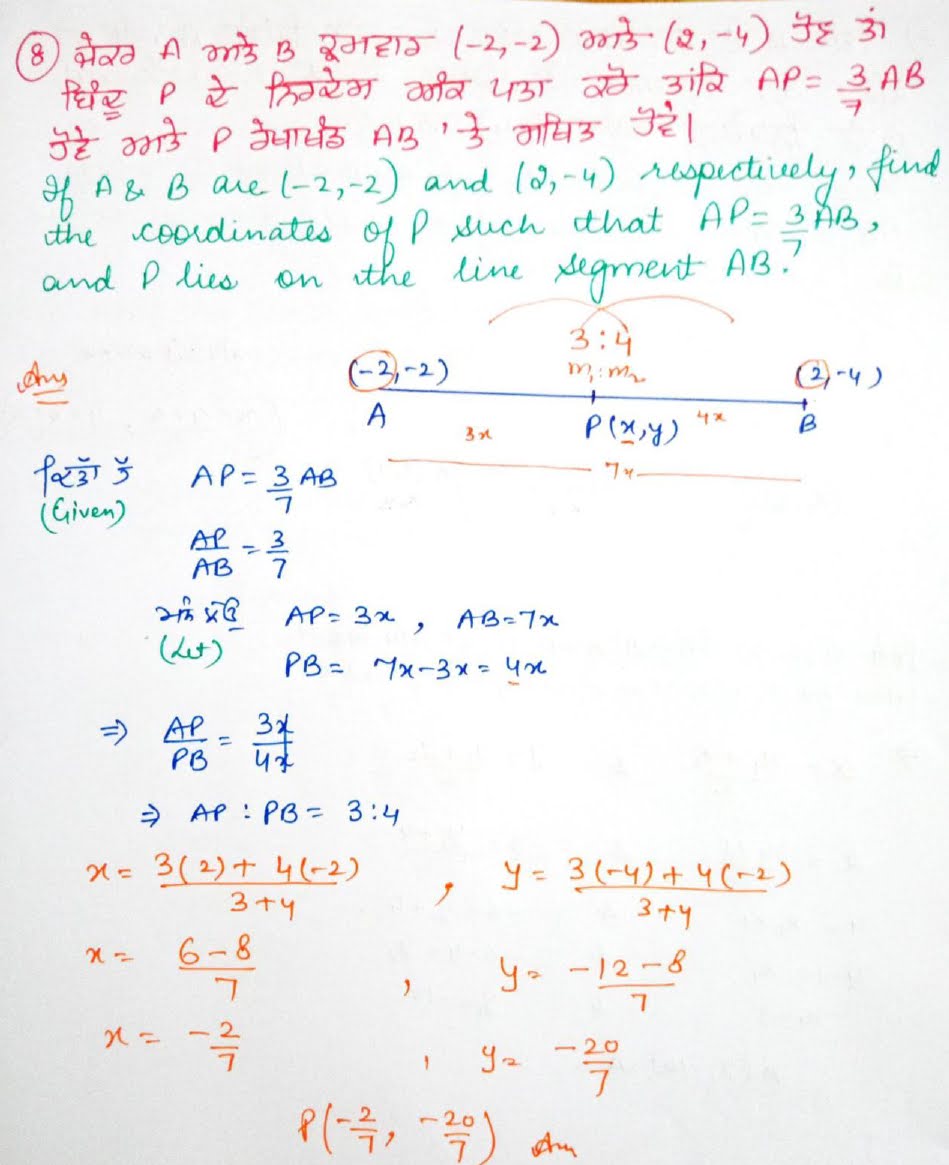 8 ਜੇਕਰ A ਅਤੇ B ਕ੍ਰਮਵਾਰ (-2,-2) ਅਤੇ (2,-4) ਹੋਣ ਤਾਂ
ਬਿੰਦੂ P ਦੇ ਨਿਰਦੇਸ਼ ਅੰਕ ਪਤਾ ਕਰੋ ਤਾਂਕਿ AP = 3/7 AB
ਹੋਵੇ ਅਤੇ P ਰੇਖਾਖੰਡ AB 'ਤੇ ਸਥਿਤ ਹੋਵੇ।
If A & B are (-2,-2) and (2,-4) respectively, find
the coordinates of P such that AP = 3/7 AB,
and P lies on the line segment AB.
3:4
Ans
(-2,-2) m₁:m₂ (2,-4)
A P(x,y) B
3x 4x
7x
ਦਿੱਤਾ ਹੈ AP = 3/7 AB
(Given)
AP/AB = 3/7
ਮੰਨ ਲਉ AP = 3x , AB = 7x
(Let) PB = 7x-3x = 4x
⇒ AP/PB = 3x/4x
⇒ AP : PB = 3:4
x = 3(2)+4(-2)/3+4 , y = 3(-4)+4(-2)/3+4
x = 6-8/7 , y = -12-8/7
x = -2/7 , y = -20/7
P(-2/7, -20/7) Ans